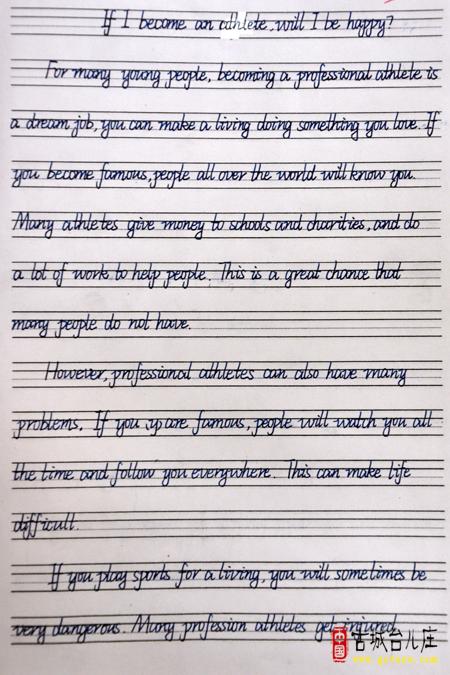 If I become an athlete, will I be happy?
For many young people, becoming a professional athlete is
a dream job, you can make a living doing something you love. If
you become famous, people all over the world will know you.
Many athletes give money to schools and charities, and do
a lot of work to help people. This is a great chance that
many people do not have.
However, professional athletes can also have many
problems. If you are famous, people will watch you all
the time and follow you everywhere. This can make life
difficult.
If you play sports for a living, you will sometimes be
very dangerous. Many profession athletes get injured
中国 古城台儿庄